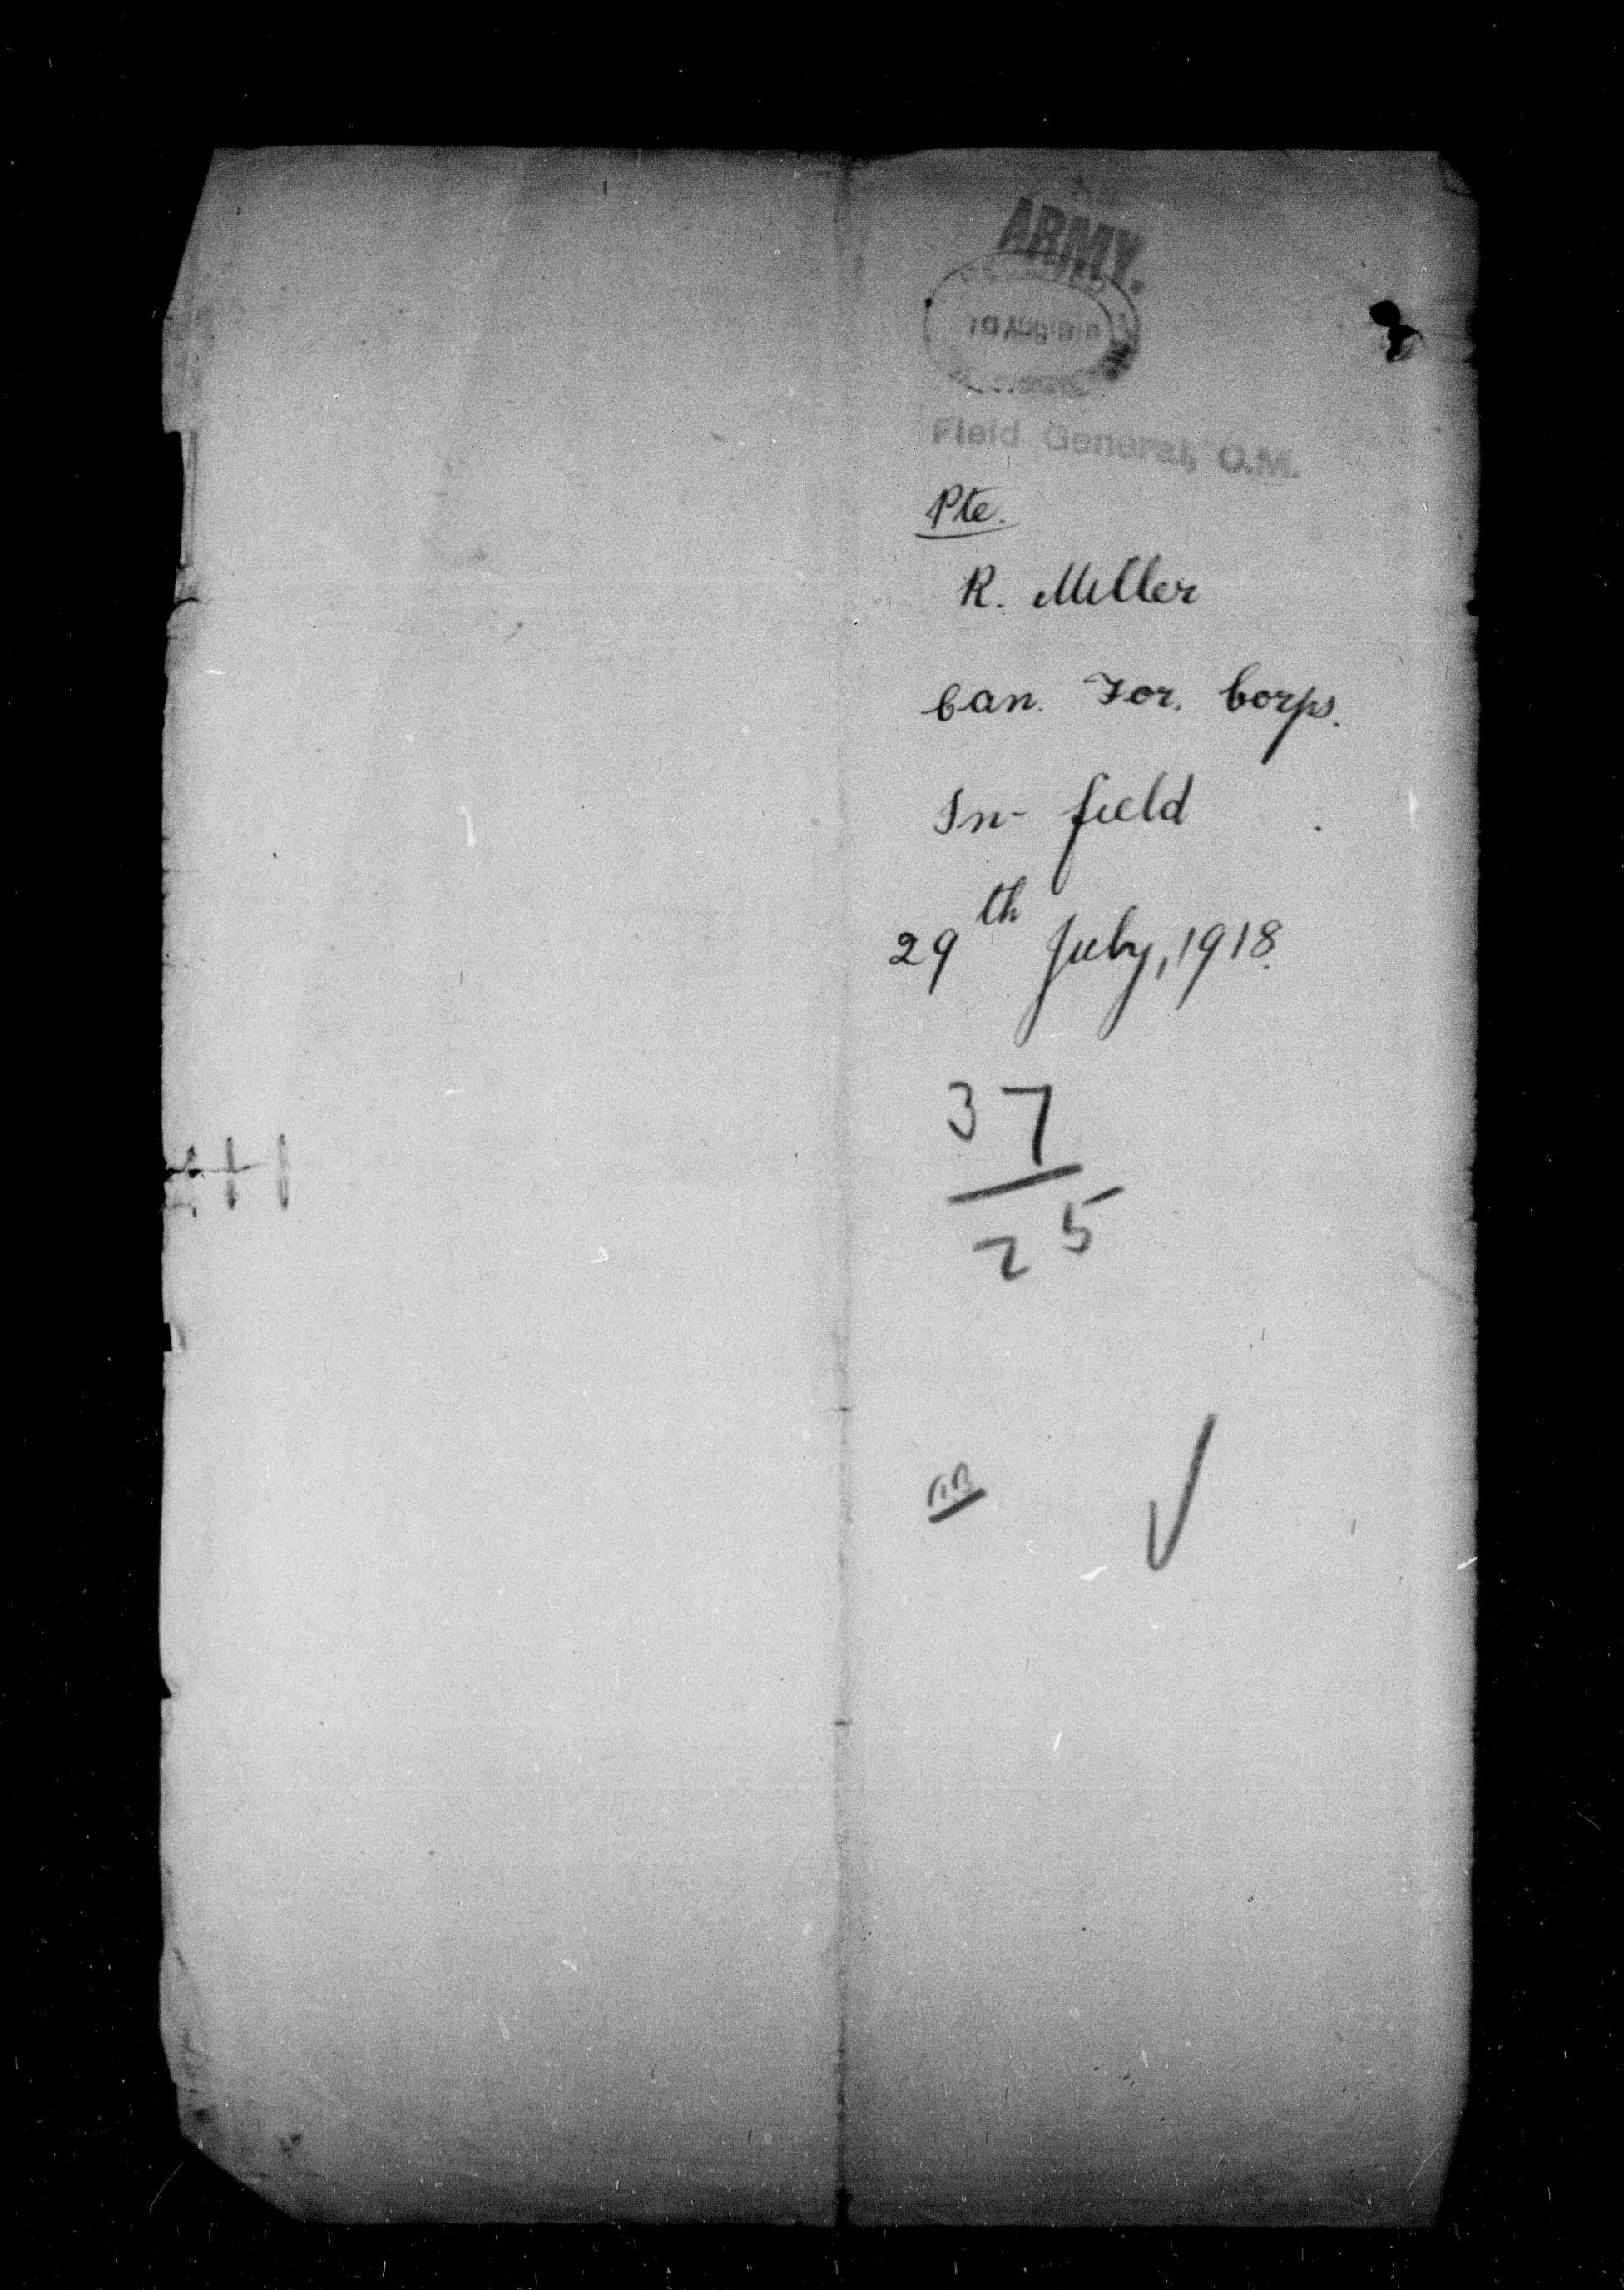 ARMY.
Field General, C.M.
Pte.
R. Miller
Can. For. Corps.
In field
29th July, 1918.
37
25